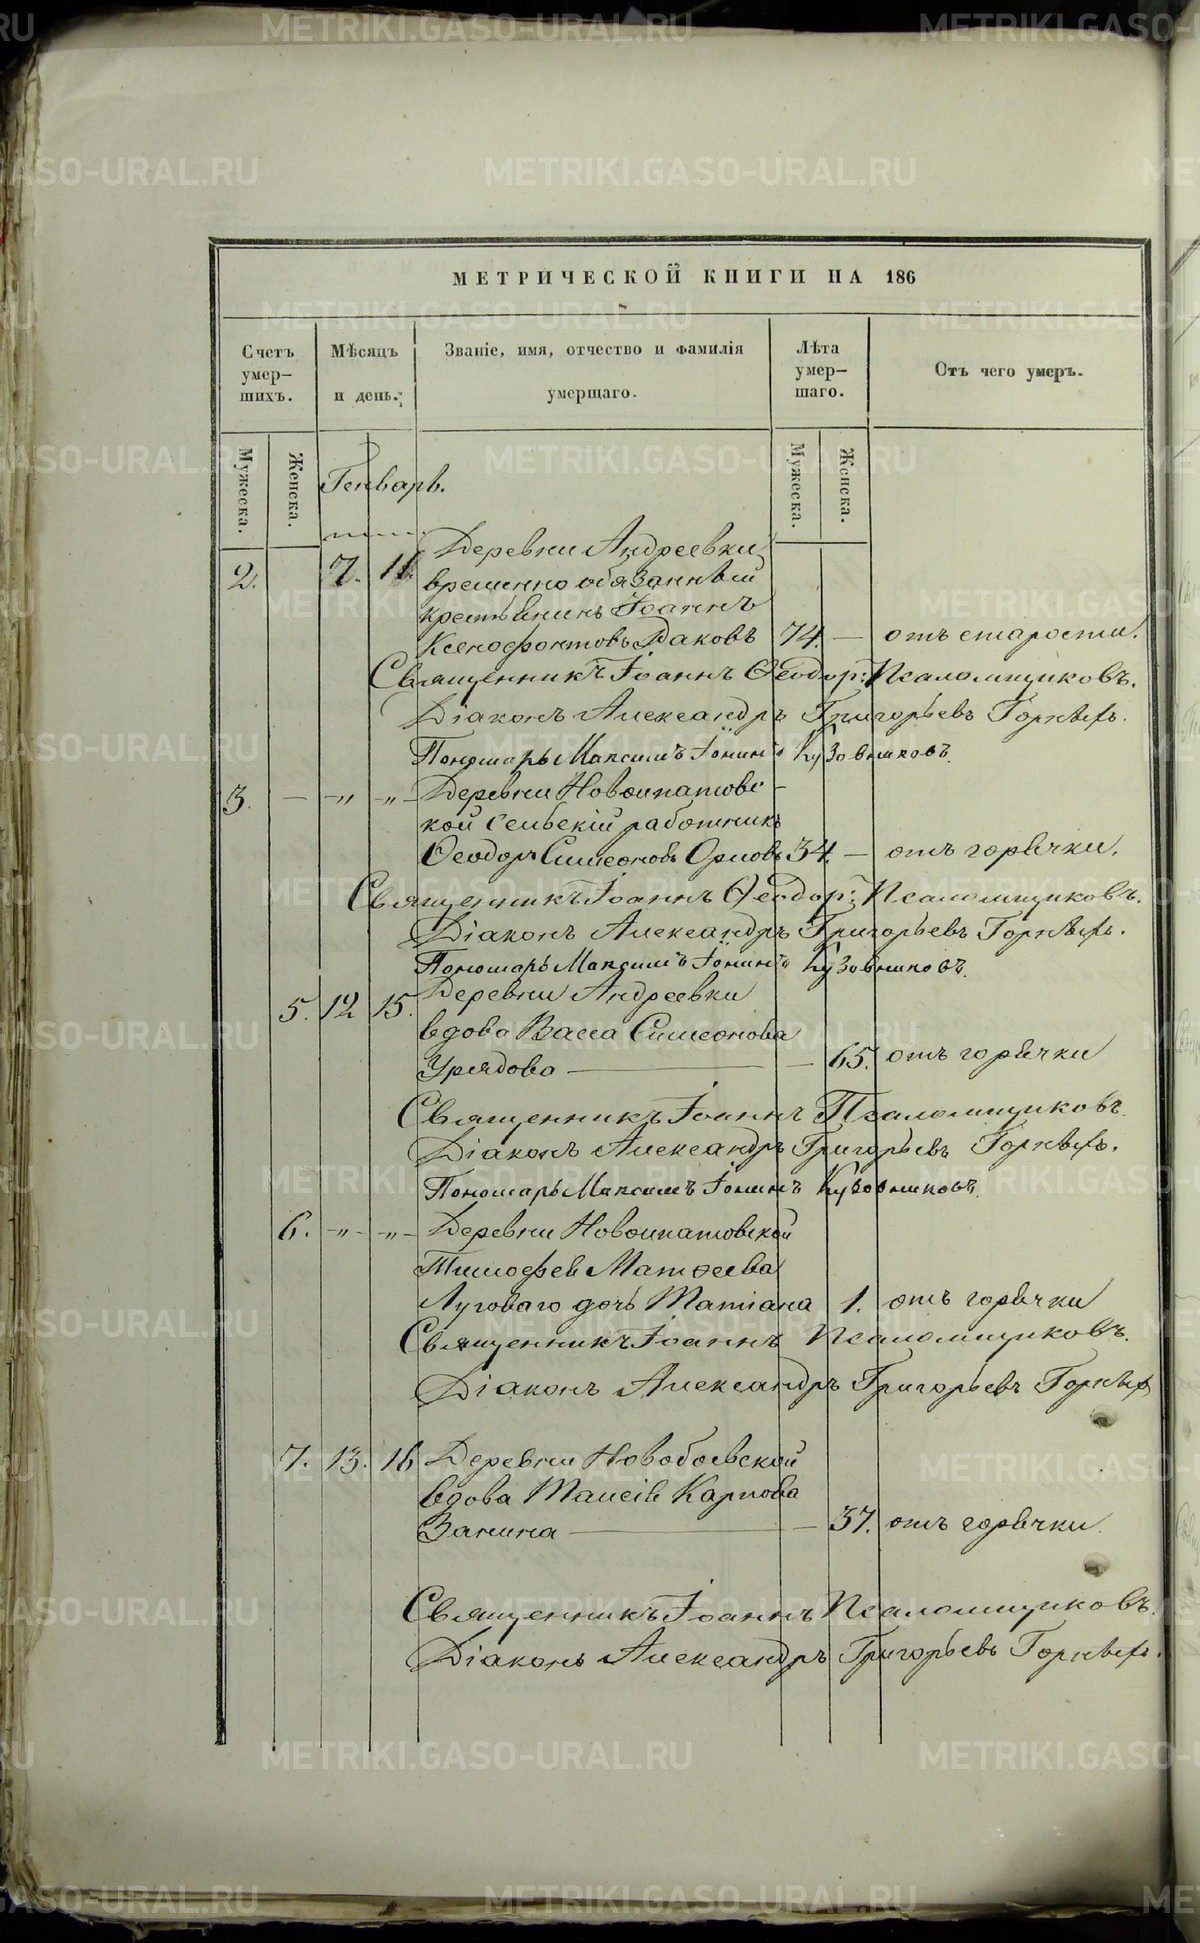 МЕТРИЧЕСКОЙ КНИГИ НА 186
Счетъ умер—шихъ.
Мѣсяцъ и день.
Званіе, имя, отчество и фамилія умершаго.
Лѣта умер—шаго.
Отъ чего умеръ.
Мужеска.
Женска.
Мужеска.
Женска.
Генварь.
Деревни Андреевки
2. 7. 11. временно обязанный
крестьянинъ Іоаннъ
Ксенофонтовъ 74. — отъ старости.
Священникъ Іоаннъ Ѳеодор: Псаломщиковъ.
Діаконъ Александръ Григорьевъ
Пономарь Максимъ Іонинъ Кузовниковъ.
3. — -„- -„- Деревни Новоипатовс-
кой сельскій работникъ
Ѳеодоръ Симеоновъ Орловъ 34. — отъ горячки.
Священникъ Іоаннъ Ѳеодор: Псаломщиковъ.
Діаконъ Александръ Григорьевъ
Пономарь Максимъ Іонинъ Кузовниковъ.
5. 12 15. Деревни Андреевки
вдова Васса Симеонова
Урядова — 65. отъ горячки
Священникъ Іоаннъ Псаломщиковъ.
Діаконъ Александръ Григорьевъ
Пономарь Максимъ Іонинъ Кузовниковъ.
6. -„- -„- Деревни Новоипатовской
Тимофея Матѳеева
Луговаго дочь Татіана 1. отъ горячки
Священникъ Іоаннъ Псаломщиковъ.
Діаконъ Александръ Григорьевъ
7. 13. 16 Деревни Новобоевской
вдова Таисія Карпова
Занина — 37. отъ горячки.
Священникъ Іоаннъ Псаломщиковъ.
Діаконъ Александръ Григорьевъ
METRIKI.GASO-URAL.RU